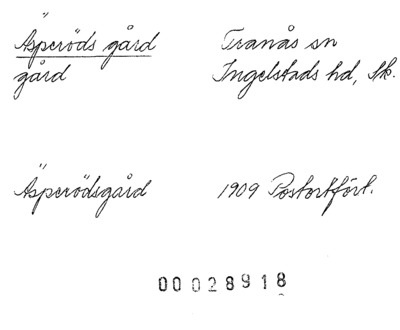 Äsperöds gård
gård
Tranås sn
Ingelstads hd, Sk.
Äsperödsgård
1909 Postortfört.
00028918